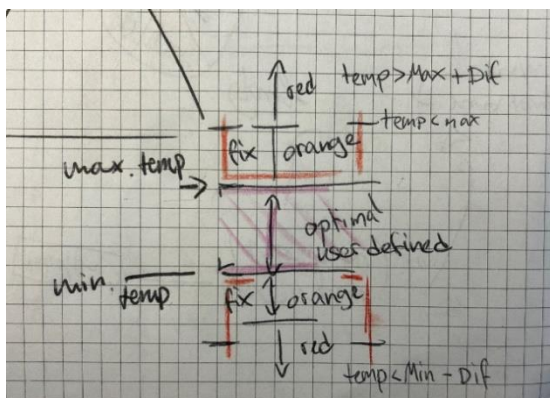 red temp>Max+Dif
temp<max
fix orange
max. temp
optimal
user defined
min.
temp
fix orange
red
temp<Min-Dif